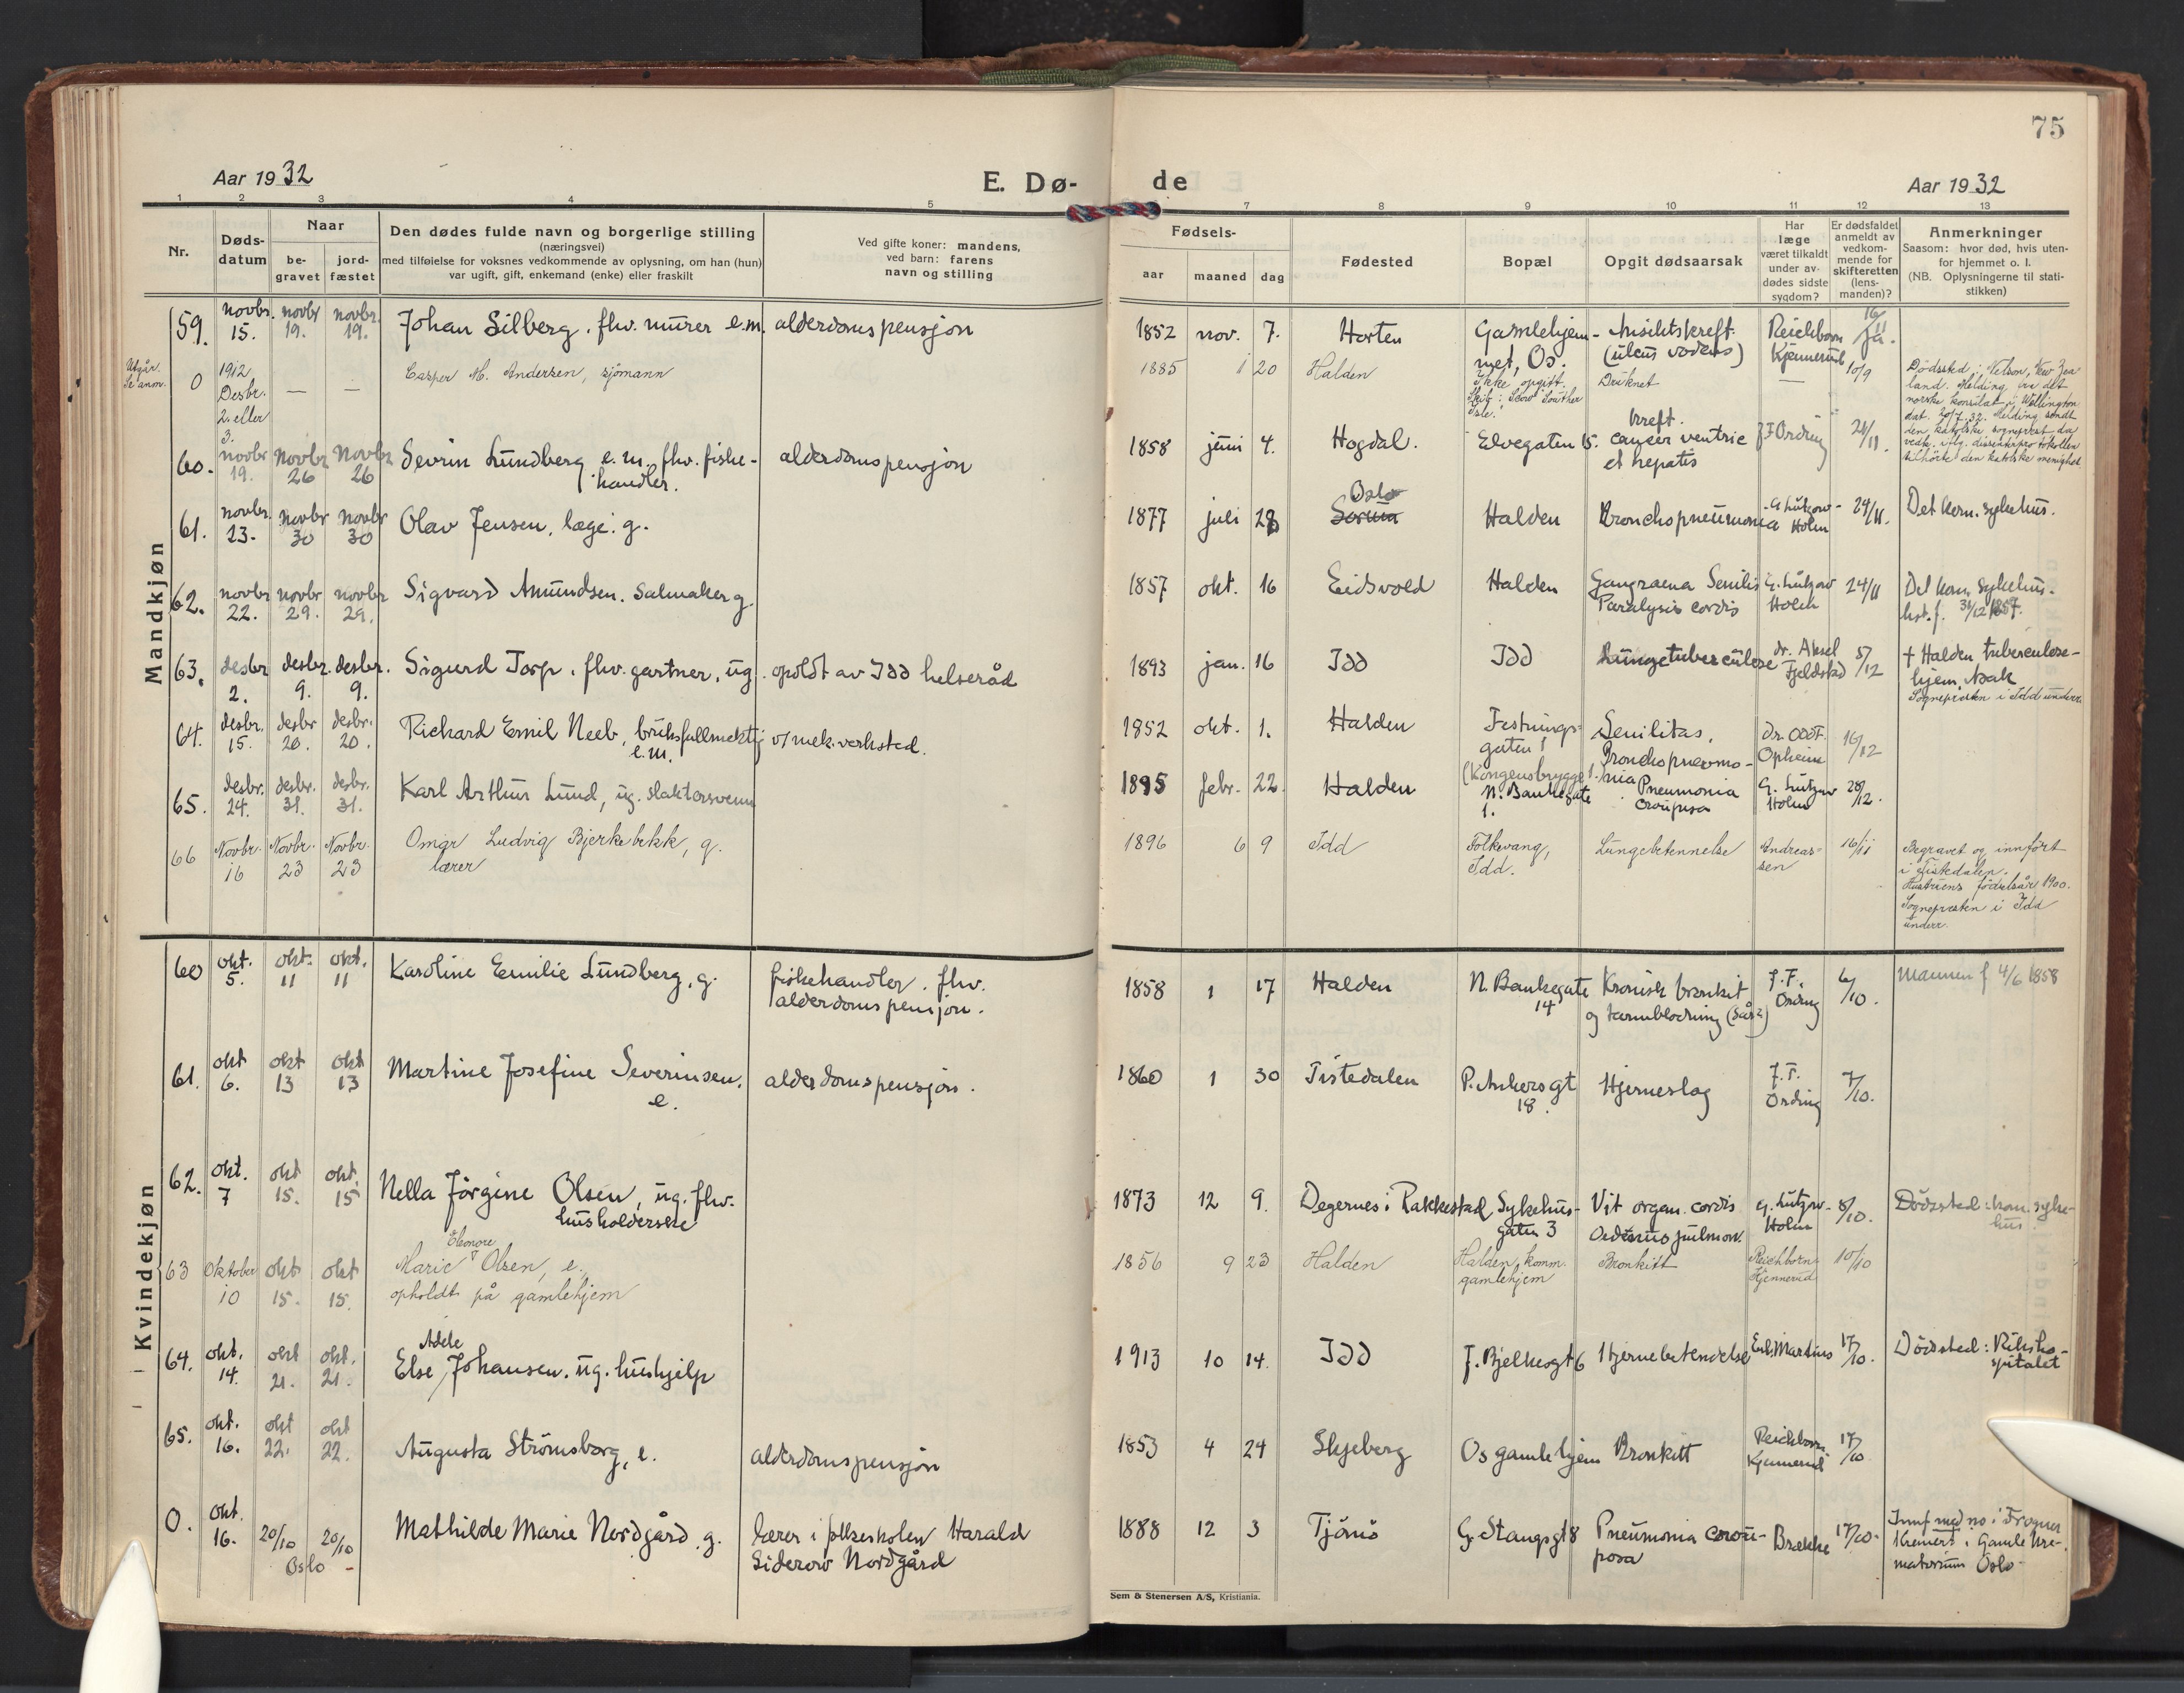 75
Aar 1932
E. Dø-
de
Aar 1932
1 2 3 4 5 7 8 9 10 11 12 13
Nr.
Døds-
datum
Naar
be-
gravet
jord-
fæstet
Den dødes fulde navn og borgerlige stilling
(næringsvei)
med tilføielse for voksnes vedkommende av oplysning, om han (hun)
var ugift, gift, enkemand (enke) eller fraskilt
Ved gifte koner: mandens,
ved barn: farens
navn og stilling
Fødsels-
aar maaned dag
Fødested
Bopæl
Opgit dødsaarsak
Har
læge
været tilkaldt
under av-
dødes sidste
sygdom?
Er dødsfaldet
anmeldt av
vedkom-
mende for
skifteretten
(lens-
manden)?
Anmerkninger
Saasom: hvor død, hvis uten-
for hjemmet o. l.
(NB. Oplysningerne til stati-
stikken)
Mandkjøn
59. novbr. 15. novbr 19. novbr. 19. Johan Silberg. fhv. murer e.m. alderdomspensjon
1852 nov. 7. Horten Gamlehjem-
met, Os. Ansiktskreft.
(ulcus rodens) Reichborn
Kjennerud 16/11 Ja.
Utgår.
Se anm. 0 1912
Desbr.
2. eller
3. — — Casper M. Andersen, sjömann
1885 1 20 Halden Ikke opgitt.
Skib: Druknet — 10/9 Dödssted: Nelson, New Zea
land. Melding fra det
norske konsulat i Wellington
dat. 20/7.32. Melding sendt
den katolske sogneprest da
vedk. iflg. dissenterprotokollen
tilhörte den katolske menighet
60. novbr 19. Novbr 26 Novbr 26 Sevrin Lundberg e.m. fhv. fiske-
handler. alderdomspensjon
1858 juni 4. Hogdal. Elvegaten 15. Kreft.
cancer ventric
et hepatis F Ording 24/11.
61. novbr. 23. Novbr 30 novbr 30 Olav Jensen, læge. g.
1877 juli 28 Oslo Halden Bronchopneumonia G. Lutzow-
Holm 24/11. Det kom. sykehus.
62. novbr 22. novbr 29. novbr 29. Sigvard Amundsen. Salmaker g.
1857 okt. 16 Eidsvold Halden Gangraena Senilis
Paralysis cordis G. Lutzow
Holm 24/11 Det kom. sykehus.
hst. f. 31/12 1857.
63. desbr 2. desbr. 9. desbr. 9. Sigurd Torp. fhv. gartner, ug. opholdt av Idd helseråd
1893 jan. 16 Idd Idd Lungetuberculose dr. Aksel
Fjeldstad 5/12 † Halden tuberculose-
hjem, Asak
Sognepresten i Idd underr.
64. desbr. 15. desbr 20. desbr. 20. Richard Emil Neeb, bruksfullmektig v/ mek. verksted.
e.m.
1852 okt. 1. Halden Festnings-
gaten 1 Senilitas.
Bronchopneumo-
nia Dr. Odd F.
Opheim 16/12
65. desbr. 24. desbr. 31. desbr. 31. Karl Arthur Lund, ug. slaktersvenn
1895 febr. 22. Halden (Kongensbrygge 1.
N. Bankegate
1. Pneumonia
crouposa G. Lutzow
Holm 28/12.
66 Novbr. 16 Novbr. 23 Novbr. 23 Omar Ludvig Bjerkebekk, g.
lærer
1896 6 9 Idd Folkevang,
Idd. Lungebetennelse Andreas-
sen 16/11 Begravet og innfört
i Tistedalen.
Hustruens födselsår 1900.
Sognepresten i Idd
underr.
Kvindekjøn
60 okt. 5. okt. 11 okt. 11 Karoline Emilie Lundberg, g. fiskehandler. fhv.
alderdomspensjon.
1858 1 17 Halden N. Bankegate
14 Kronisk bronkit
og tarmblødning (Sår?) F.F.
Ording 6/10. Mannen f 4/6 1858
61. okt 6. okt 13 okt 13 Martine Josefine Severinsen.
e. alderdomspensjon.
1860 1 30 Tistedalen P. Ankers gt
18. Hjerneslag F.F.
Ording 7/10.
62. okt. 7 okt 15. okt. 15 Nella Jörgine Olsen, ug. fhv.
husholderske
1873 12 9. Degernes i Rakkestad Sykehus-
gaten 3 Vit. organ. cordis
Oedema pulmon. G. Lutzow-
Holm 8/10. Dödssted: kom. syke-
hus
63 Oktober 10 okt 15. okt 15. Marie Eleonore Olsen, e.
opholdt på gamlehjem
1856 9 23 Halden Halden komm.
gamlehjem Bronkitt Reichborn
Kjennerud 10/10
64. okt. 14. okt 21. okt. 21. Else Adele Johansen. ug. hushjelp
1913 10 14. Idd J. Bjelkesgt 6 Hjernebetendelse Martins 17/10. Dødssted: Riksho-
spitalet
65. okt. 16. okt 22. okt 22. Augusta Strømsborg, e. alderdomspensjon
1853 4 24 Skjeberg Os gamlehjem Bronkitt Reichborn
Kjennerud 17/10
0. okt. 16. 20/10 20/10
Oslo - Mathilde Marie Nordgård. g. lærer i folkeskolen Harald
Siderow Nordgård
1888 12 3 Tjömö G. Stangsgt 8 Pneumonia crou-
posa Brække 17/10. Innf med no i Frogner
Kremert i Gamle kre-
matorium Oslo-
Sem & Stenersen A/S, Kristiania.